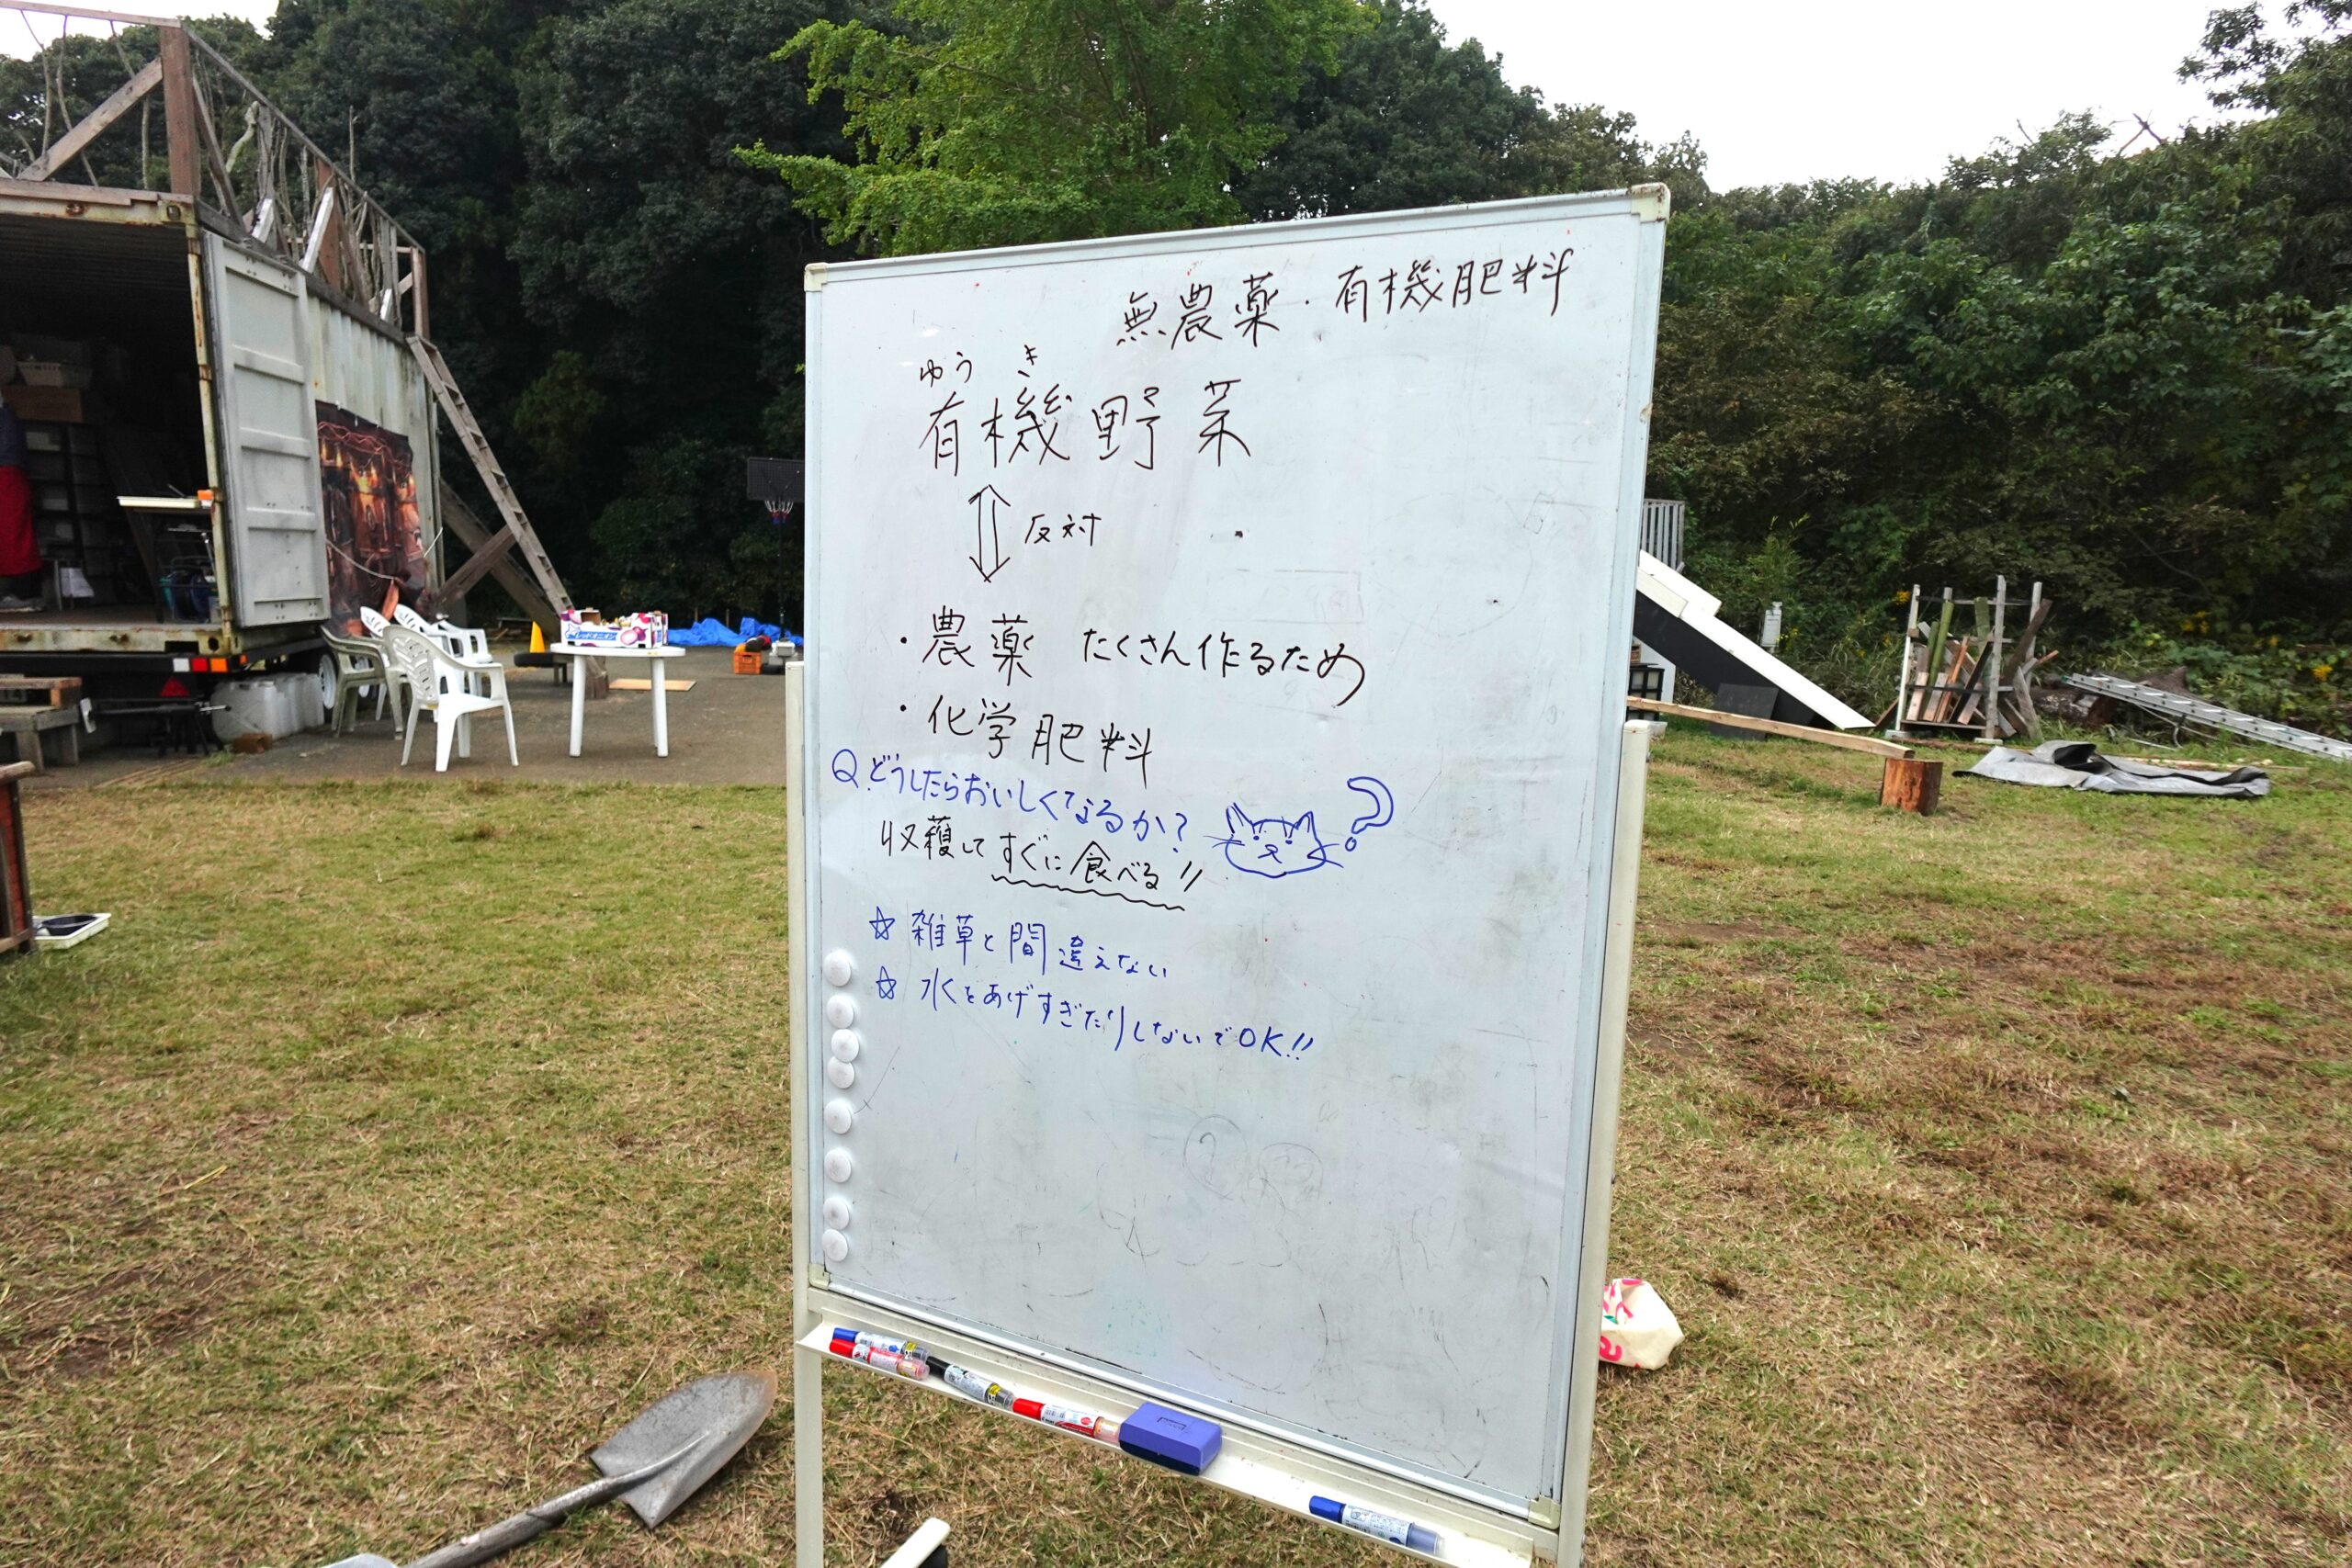 無農薬・有機肥料
ゆうき
有機野菜
反対
・農薬 たくさん作るため
・化学肥料
Q.どうしたらおいしくなるか?
収穫してすぐに食べる!!
☆ 雑草と間違えない
☆ 水をあげすぎたりしないでOK!!